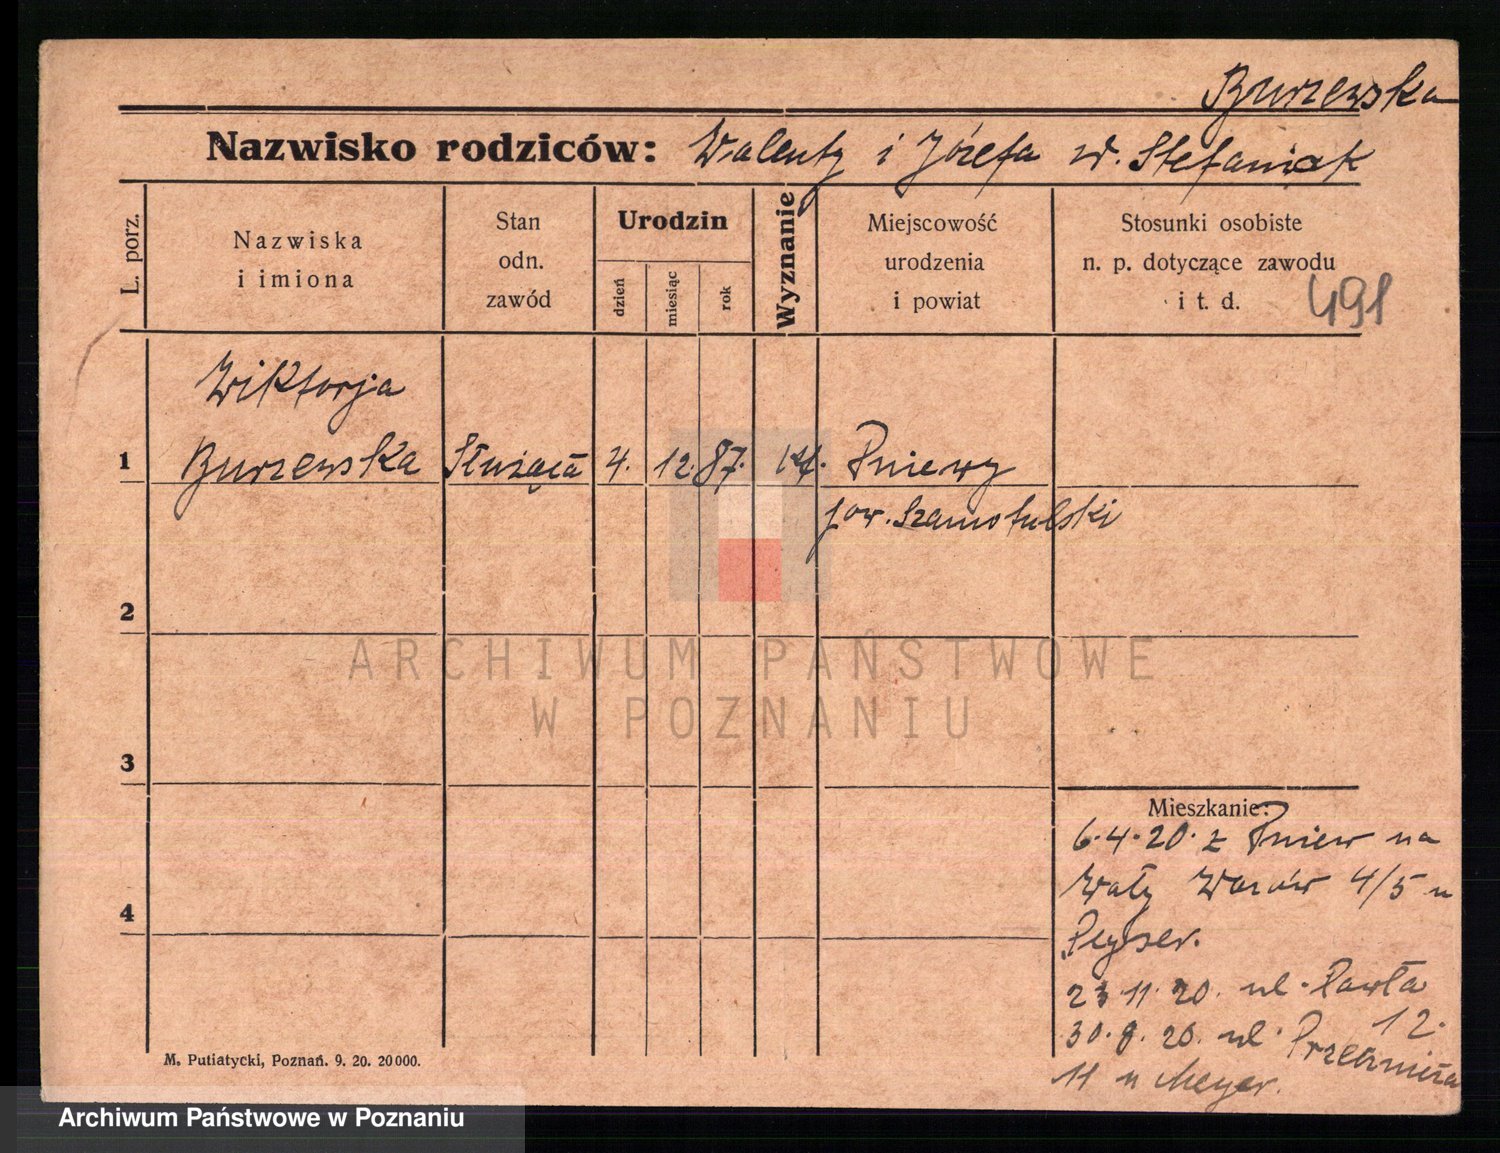 Burzewska
Nazwisko rodziców: Walenty i Józefa w. Stefaniak
L. porz.
Nazwiska
i imiona
Stan
odn.
zawód
Urodzin
dzień
miesiąc
rok
Wyznanie
Miejscowość
urodzenia
i powiat
Stosunki osobiste
n. p. dotyczące zawodu
i t. d.
491
Wiktorja
1 Burzewska Służąca 4. 12. 87. kt. Pniewy
pow. Szamotulski
2
ARCHIWUM PAŃSTWOWE
W POZNANIU
3
Mieszkanie:
6.4.20. z Pniew na
Wały Wazów 4/5 u
Peyser.
23.11.20. ul. Pawła
12.
30.8.20. ul. Przecznica
11 u Meyer.
4
M. Putiatycki, Poznań. 9. 20. 20000.
Archiwum Państwowe w Poznaniu